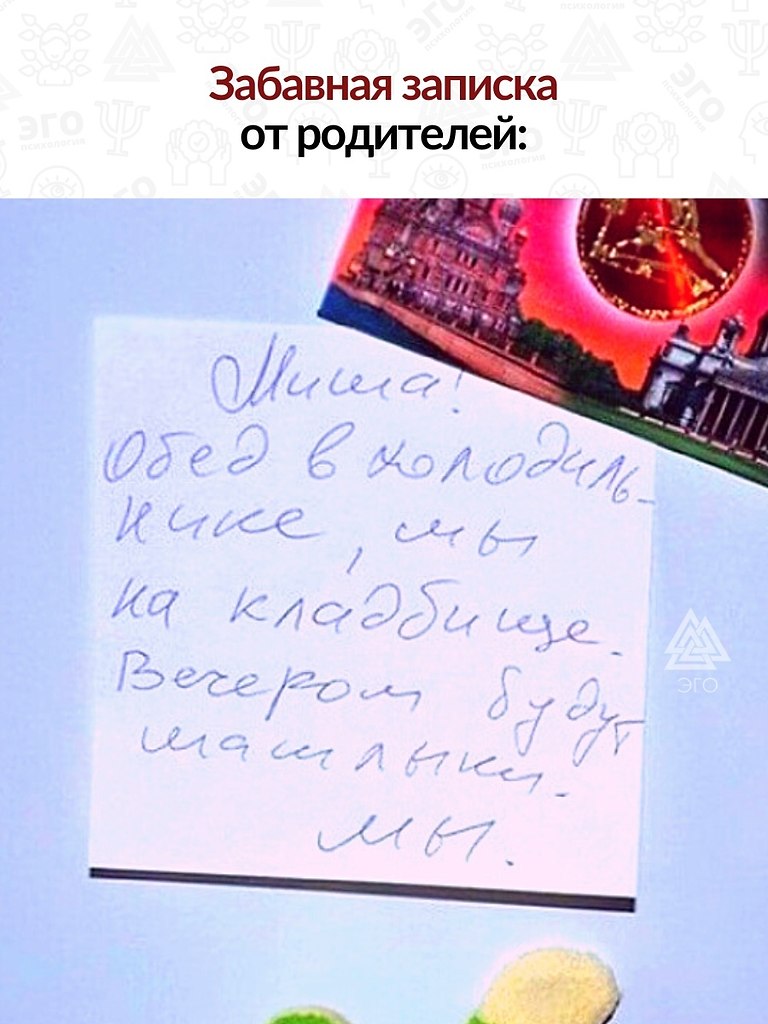 Забавная записка
от родителей:
Миша!
Обед в холодиль-
нике, мы
на кладбище.
Вечером будут
шашлыки.
мы.
ЭГО